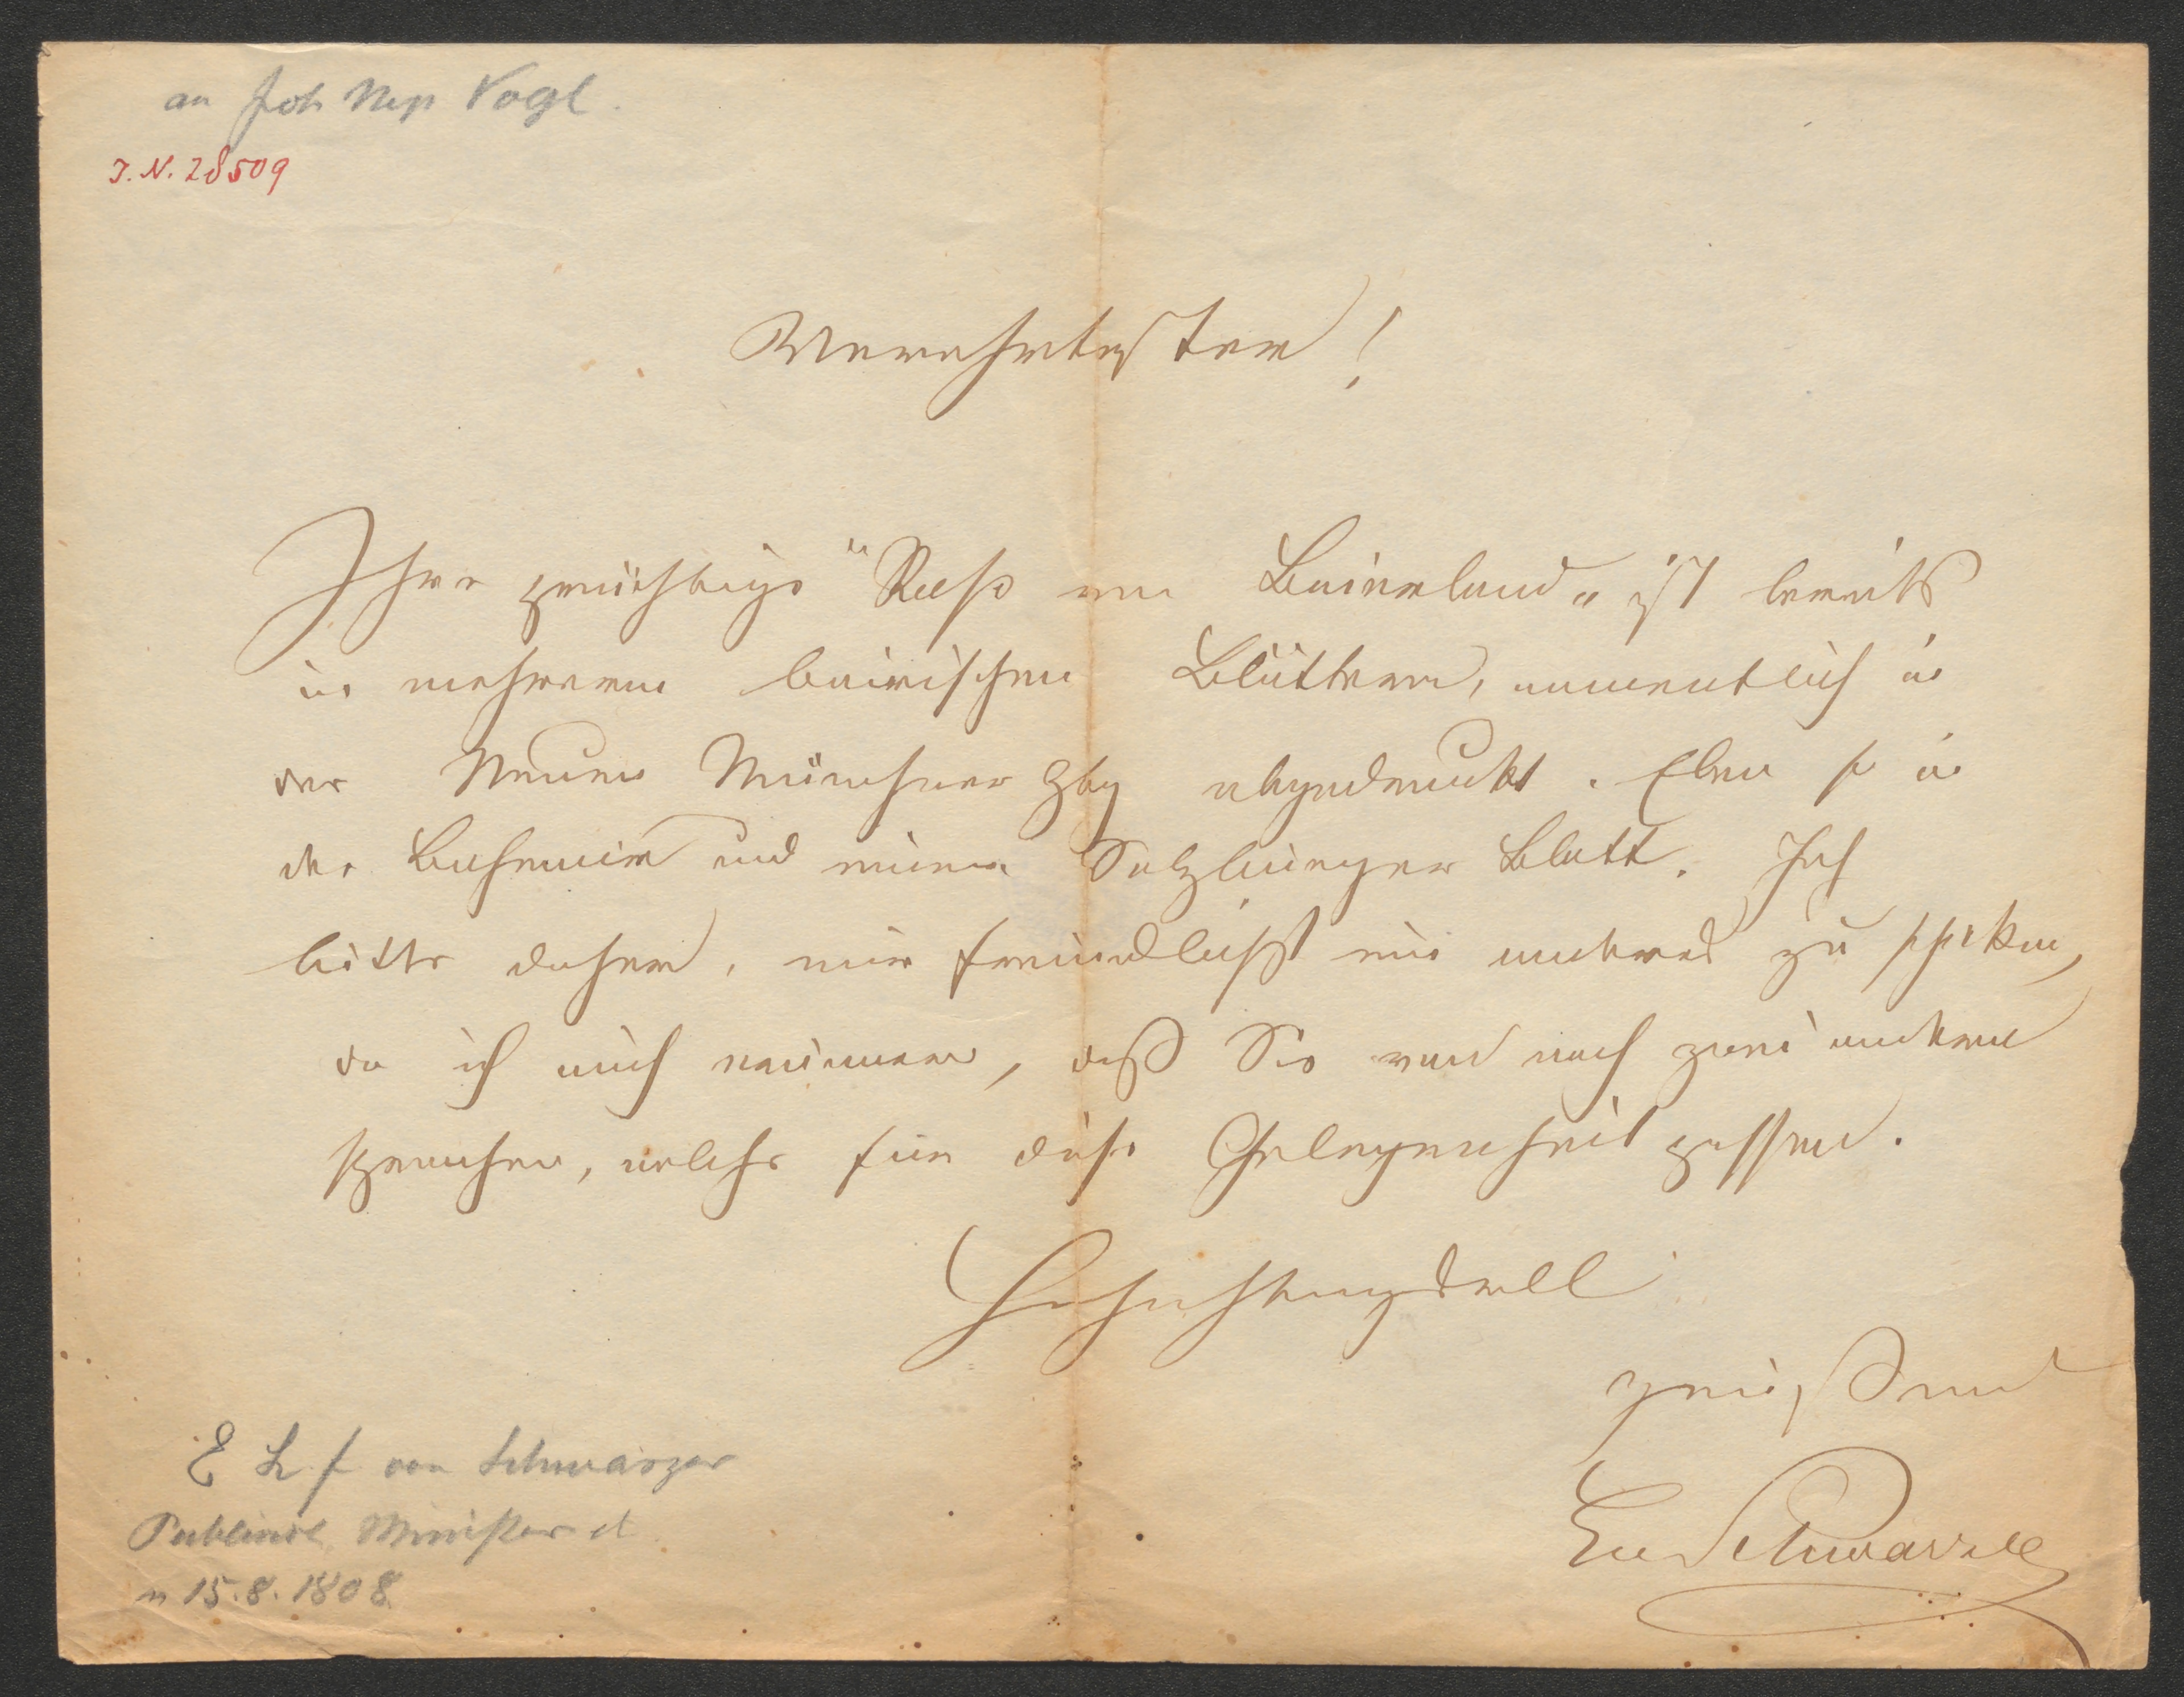 an Joh Nep Vogl.
J. N. 28509
Verehrtester!
Ihre prächtige "Rose von Baierland" ist bereits
in mehreren bairischen Blättern, namentlich in
der Neuen Münchner Ztg abgedruckt. Eben so in
der Bohemia und einem Salzburger Blatt. Ich
bitte daher, mir freundlichst ein anderes zu schicken,
da ich mich erinnere, daß Sie von noch zwei anderen
sprachen, welche für diese Gelegenheit passen.
Hochachtungsvoll
grüßend
Schwarzer
E von Schwarzer
Publicist Minister et
n 15.8.1808